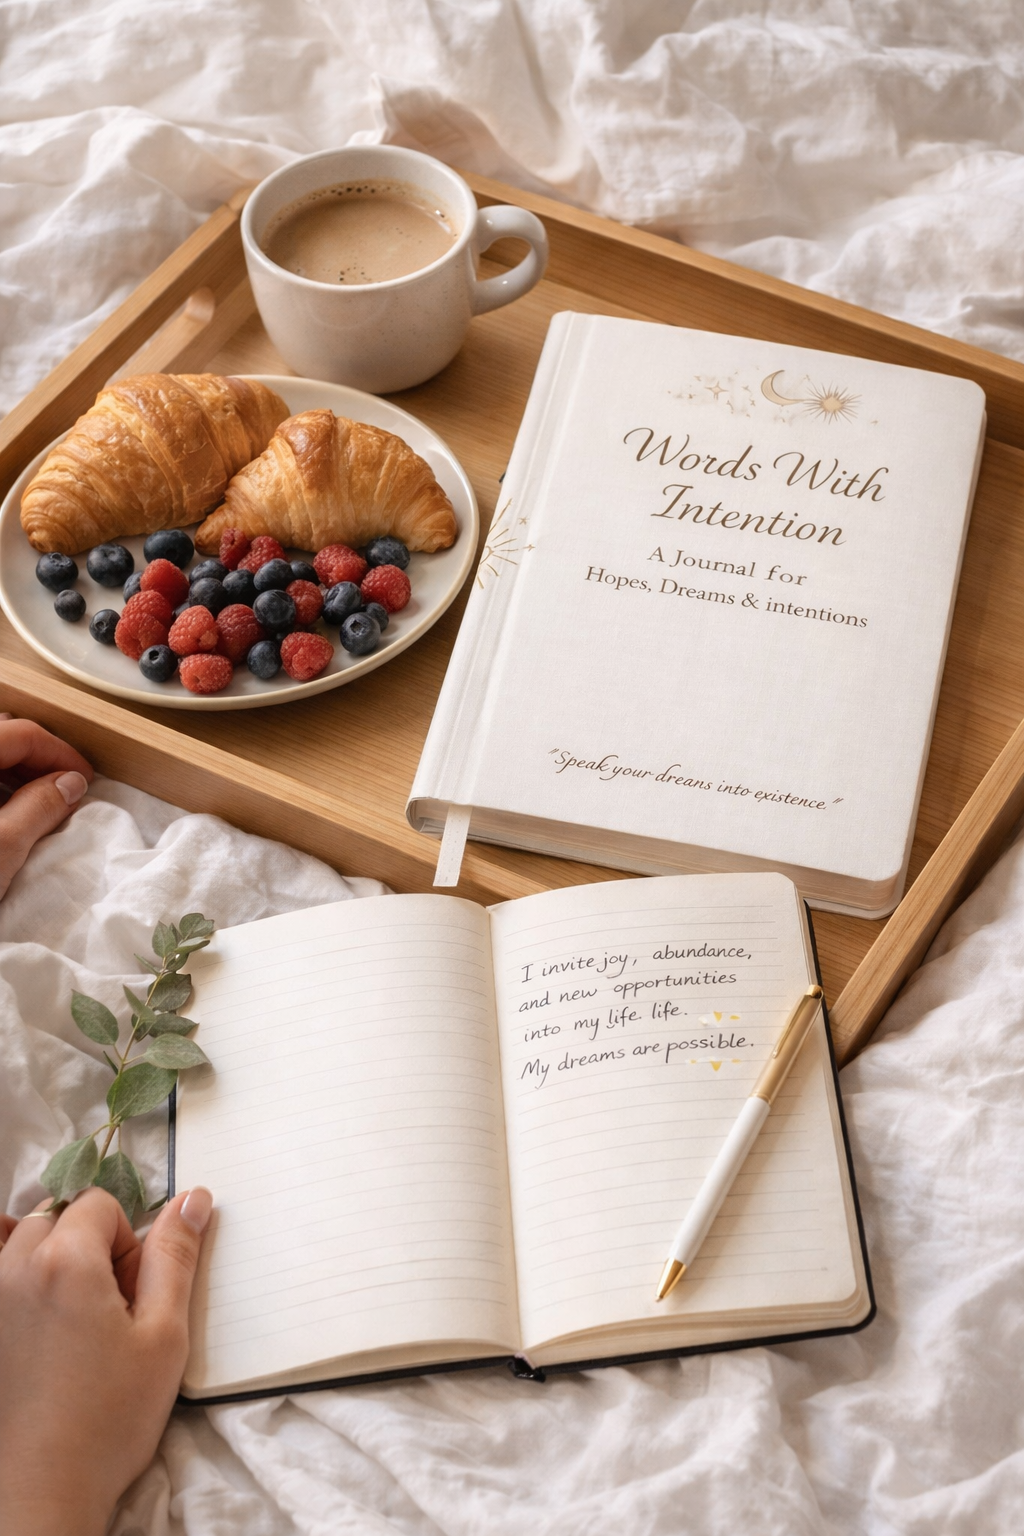 Words With
Intention
A Journal for
Hopes, Dreams & intentions
"Speak your dreans into existence."
I invite joy, abundance,
and new opportunities
into my life. life.
My dreams are possible.